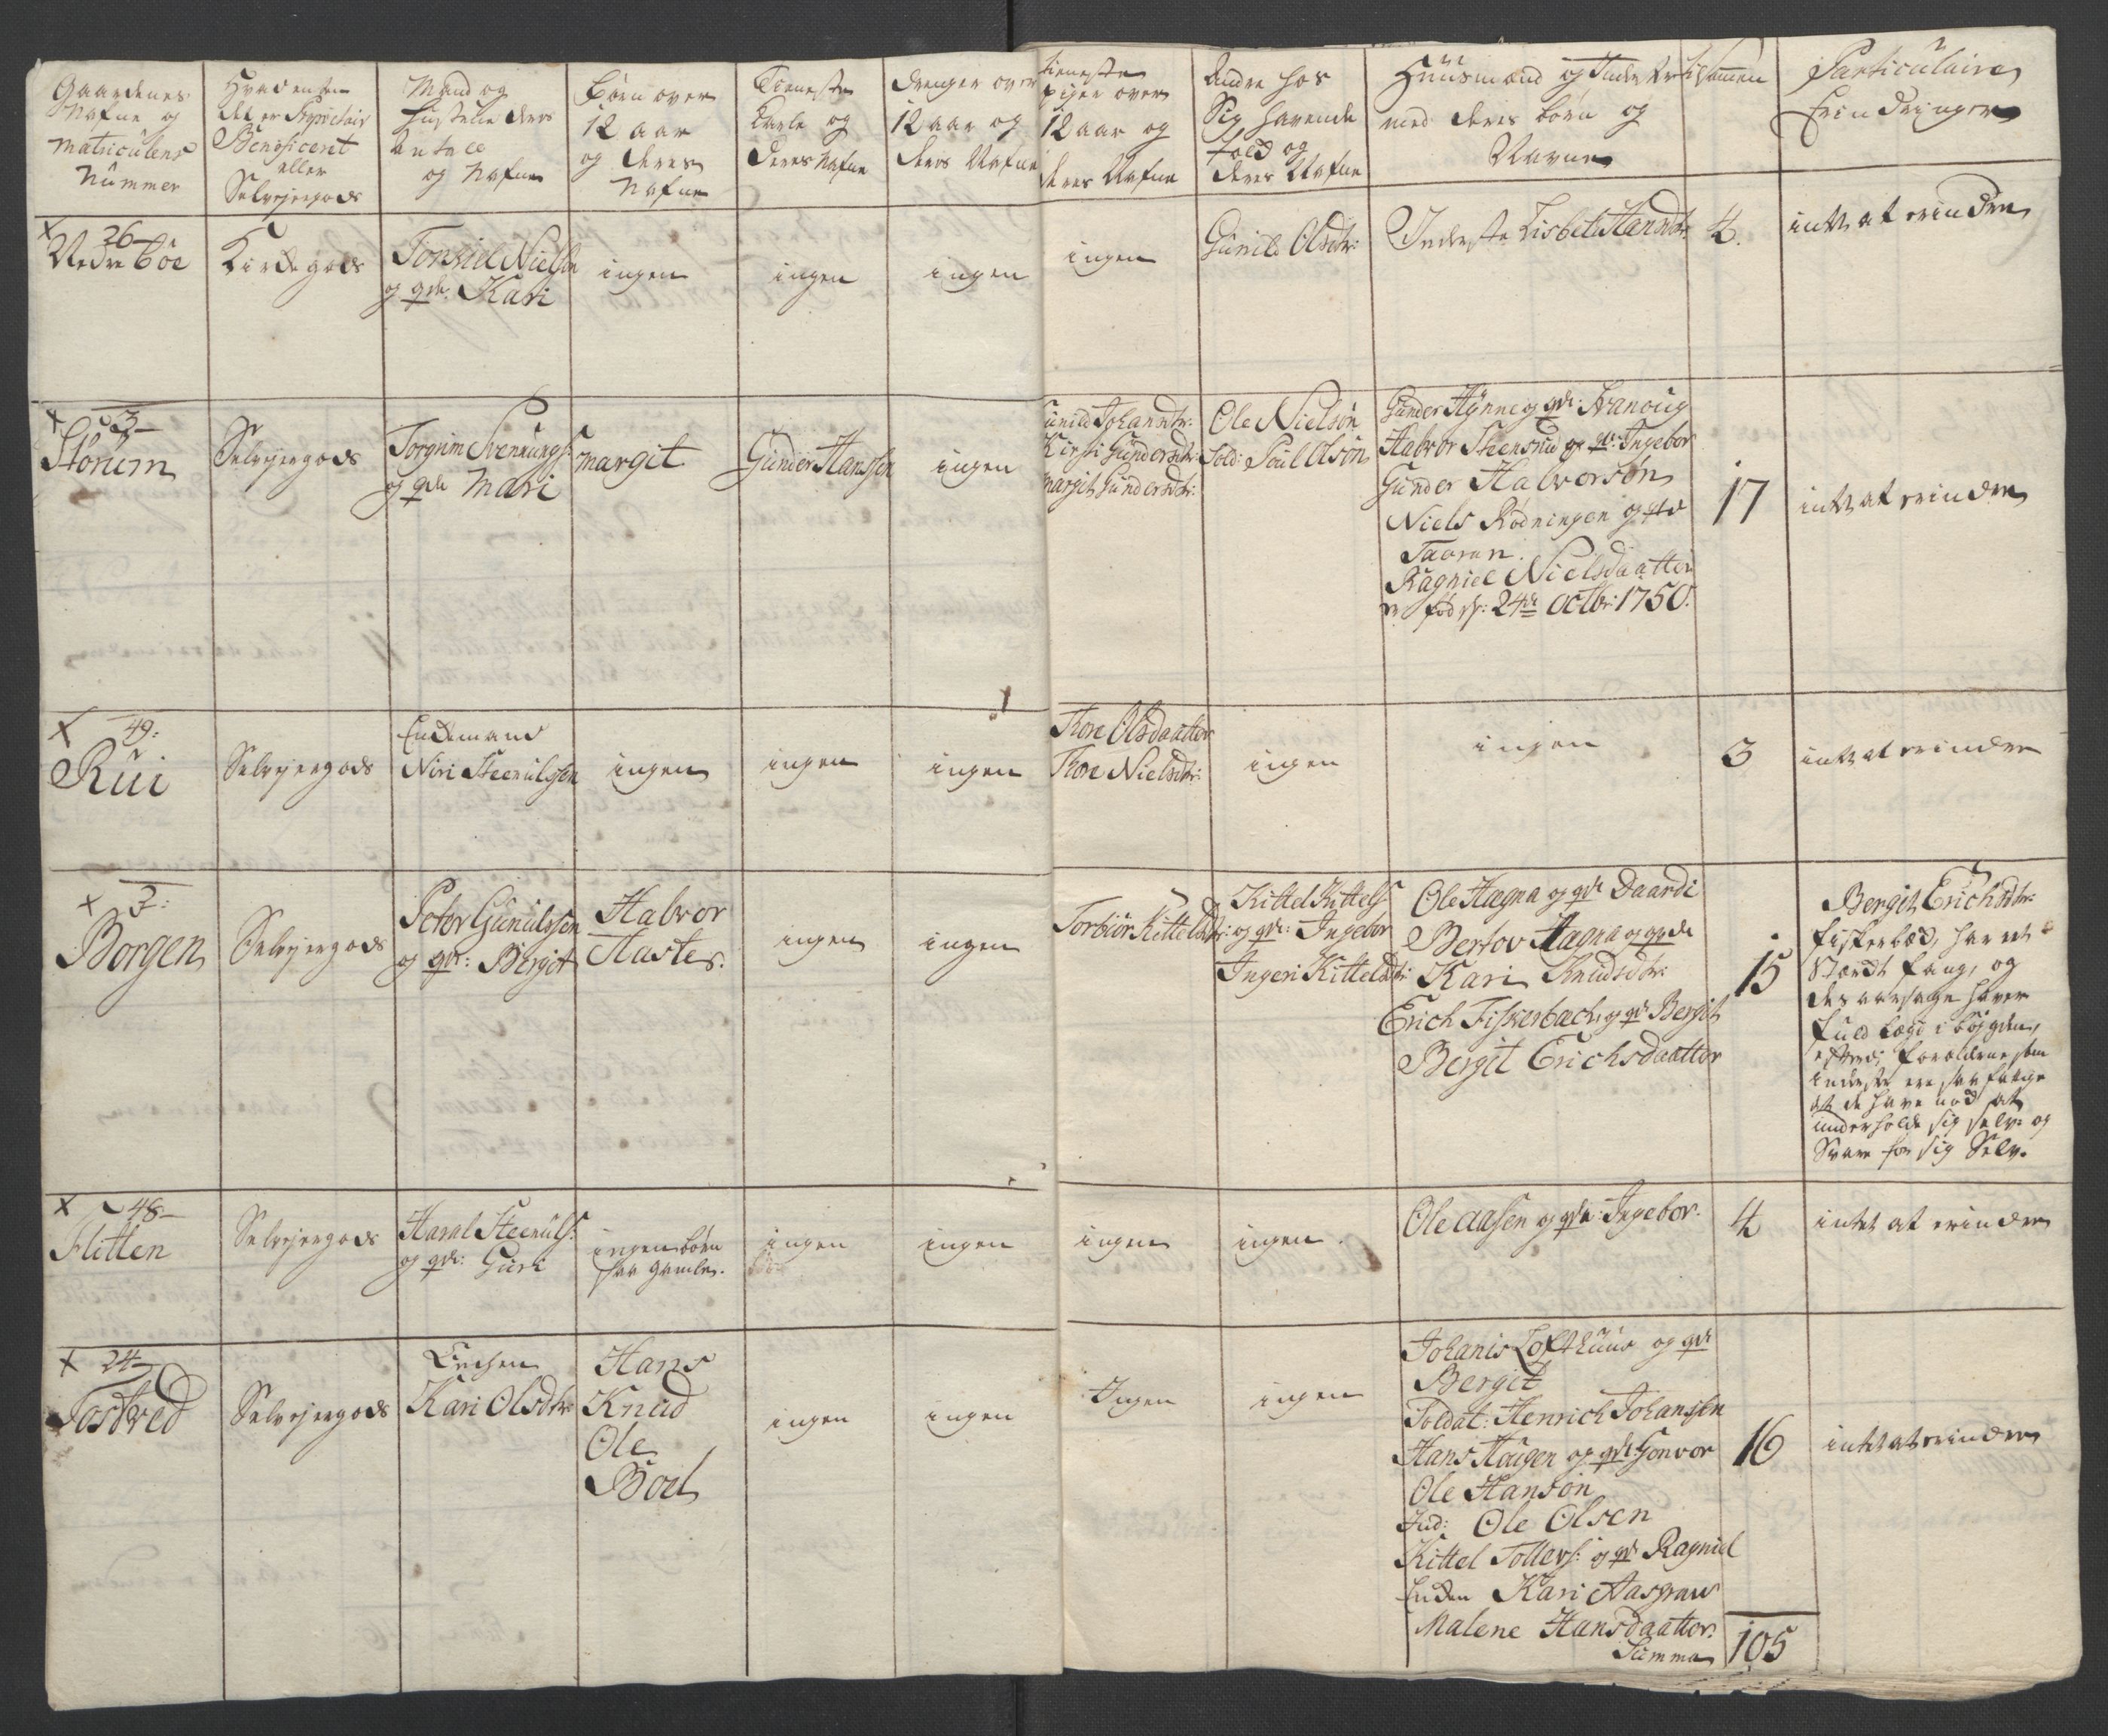 Gaardenes
Nafne og
Matriculens
Nummer
Hvad enten
det er
Beneficeret
eller
Selvejergods
Mand og
Hustrue deres
Antall
og Nafne
Børn over
12 aar
og deres
Nafne
Tieneste
Karle og
deres Nafne
Drenger over
12 aar og
deres Nafne
tieneste
piger over
12 aar og
deres Nafne
Andre hos
Sig havende
Fold og
deres Nafne
Huusmænd og Inderster
med deres børn og
Navne
tilsamen
Particulaire
Erindringer
x 26
Nedre Bøe
Kirkegods
Torkiel Nielsen
og qde: Kari
ingen
ingen
ingen
ingen
Gunild Olsdtr:
Inderste Lisbet Hansdtr:
4.
intet at erindre
x 3
Storum
Selvejergods
Torgrim Svennungs:
og qde Mari
Margit
Gunder Hanssen
ingen
Gunild Johansdtr:
Kirsti Gundersdtr:
Margit Gundersdtr:
Ole Nielsøn
Sold: Poul Olsøn
Gunder Hynne og qde: Svanoug
Halvor Steensrud og qde: Ingebor
Gunder Halvorsøn
Niels Rødningen og
Taaran.
Ragniel Nielsdaatter
er fød d: 24de Octbr: 1750.
17
intet at erindre
x 49:
Rui
Selvejergods
Enkemand
Niri Steenulssen
ingen
ingen
ingen
Tore Olsdaatter
Tore Nielsdtr:
ingen
ingen
3
intet at erindre
x 2:
Borgen
Selvejergods
Peter Gunulssen
og qde: Bergit
Halvor
Aastes.
ingen
ingen
Torbiør Kittelsdtr:
Kittel Kittels:
og qde: Ingebor
Ingeri Kittelsdtr:
Ole Hagna og qde Daardi
Bertov Hagna og qvde
Kari Knudsdtr:
Erich Fiskerbech og qde Bergit
Bergit Erichsdaatter
15
Bergit Erichsdtr:
Fiskerbæch, har et
fang, og
des aarsage haver
fuld Lægd i bøygden,
efterdi forældrene som
inderster ere saa fattige
at de have nød at
underholde sig selv og
Svare for sig Selv.
x 48
Flitten
Selvejergods
Haral Steenuls:
og qde: Guri
ingen børn
saa gamle.
ingen
ingen
ingen
ingen.
Ole Aasen og qde: Ingebor.
4
intet at erindre
x 24
Tostved
Selvejergods
Enchen
Kari Olsdtr:
Hans
Knud
Ole
Boel
ingen
ingen
Ingen
ingen
Johanis Lofthuus og qde
Bergit
Soldat: Henrich Johansen
Hans Haugen og qde: Gonvor
Ole Hansøn
Ind: Ole Olsen
Kittel Tollefs: og qde Ragnild
Enken Kari Aasgrav
Malene Hansdaatter:
Summa
16
105
intet at erindre